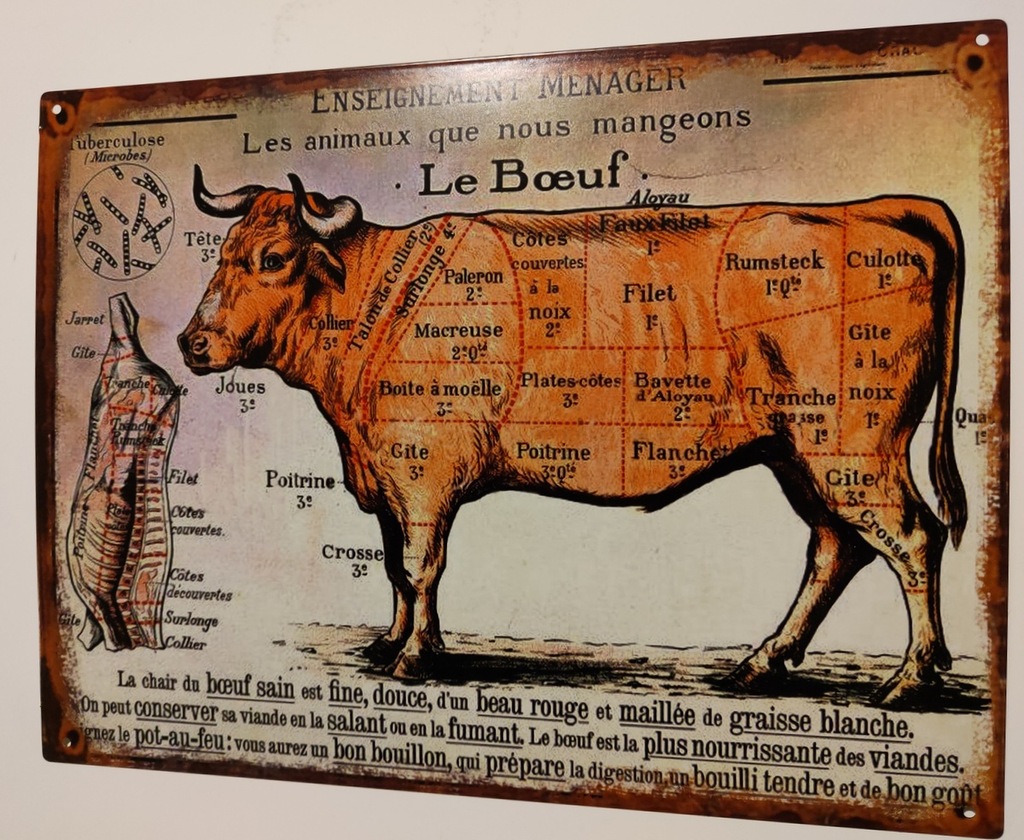 CHAC
ENSEIGNEMENT MENAGER
Les animaux que nous mangeons
· Le Bœuf ·
Tuberculose
(Microbes)
Aloyau
Tête
3e
Collier
3e
Talon de Collier (2e)
Surlonge 4e
Paleron
2e
Côtes
couvertes
à la
noix
2e
Faux Filet
1e
Filet
1e
Rumsteck
1e Qté
Culotte
1e
Macreuse
2e Qté
Gîte
à la
noix
1e
Joues
3e
Boite à moëlle
3e
Plates-côtes
3e
Bavette
d'Aloyau
2e
Tranche
grasse
1e
Qua
1e
Gîte
3e
Poitrine
3e Qté
Flanchet
3e
Gîte
3e
Poitrine
3e
Crosse
3e
Crosse
3e
Jarret
Gîte
Tranche
Culotte
Tranche
Rumsteck
Flanchet
Filet
Côtes
couvertes.
Poitrine
Côtes
découvertes
Gîte
Surlonge
Collier
La chair du bœuf sain est fine, douce, d'un beau rouge et maillée de graisse blanche.
On peut conserver sa viande en la salant ou en la fumant. Le bœuf est la plus nourrissante des viandes.
gnez le pot-au-feu: vous aurez un bon bouillon, qui prépare la digestion, un bouilli tendre et de bon goût